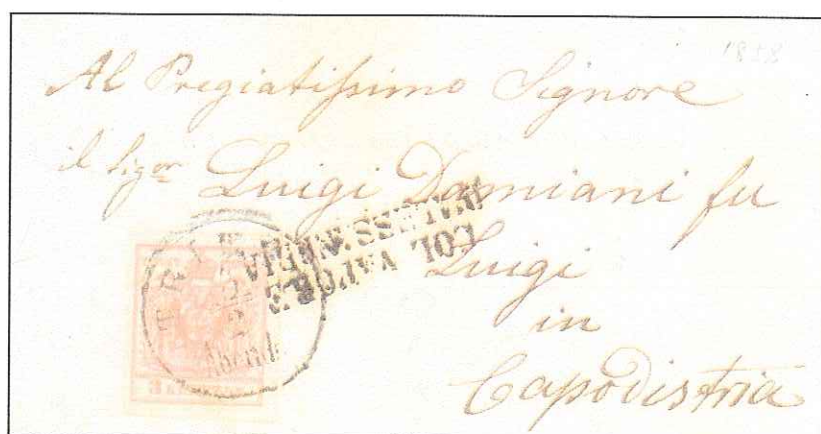 1858
Al Pregiatissimo Signore
il Sigor Luigi Damiani fu
Luigi
in
Capodistria
COL VAPORE